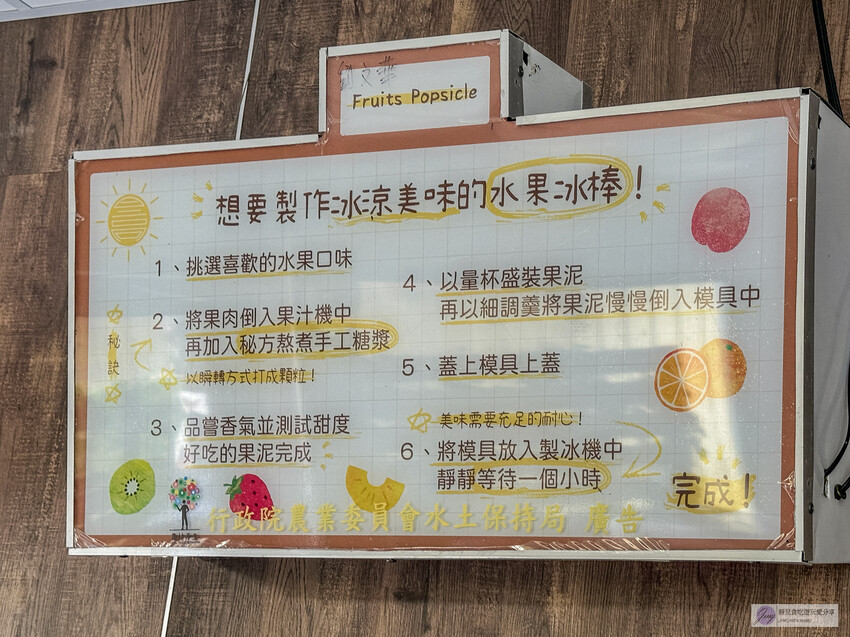 Fruits Popsicle
想要製作冰涼美味的水果冰棒！
1、挑選喜歡的水果口味
2、將果肉倒入果汁機中
再加入秘方熬煮手工糖漿
以瞬轉方式打成顆粒！
秘訣
3、品嘗香氣並測試甜度
好吃的果泥完成
4、以量杯盛裝果泥
再以細調羹將果泥慢慢倒入模具中
5、蓋上模具上蓋
美味需要充足的耐心！
6、將模具放入製冰機中
靜靜等待一個小時
完成！
行政院農業委員會水土保持局 廣告